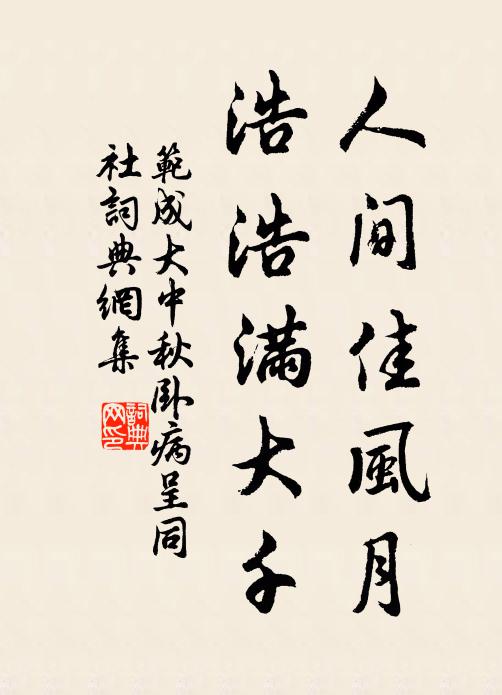 人間佳風月
浩浩滿大千
範成大中秋卧病呈同
社詞典網集
詞典
网印